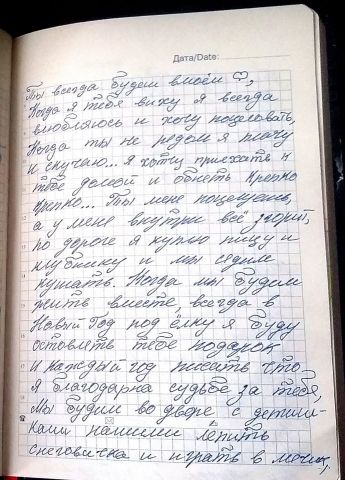 Дата/Date:
Ты всегда будеш вмоём ♡,
Когда я тебя вижу я всегда
влюбляюсь и хочу поцеловать,
Когда ты не рядом я плачу
и скучаю... Я хотци приехать к
тебе домой и обнеть крепко
крепко... Ты мене поцелуешь,
а у мене внутри всё згорит,
по дороге я куплю пицу и
клубнику и мы седим
кушать. Когда мы будем
жить вместе всегда в
Новый Год под ёлку я буду
оставлеть тебе подарок
и каждый год писать что
я благодарна судьбе за тебя,
Мы будим во дворе с детиш-
ками нашими лепить
снеговичка и играть в мечик,